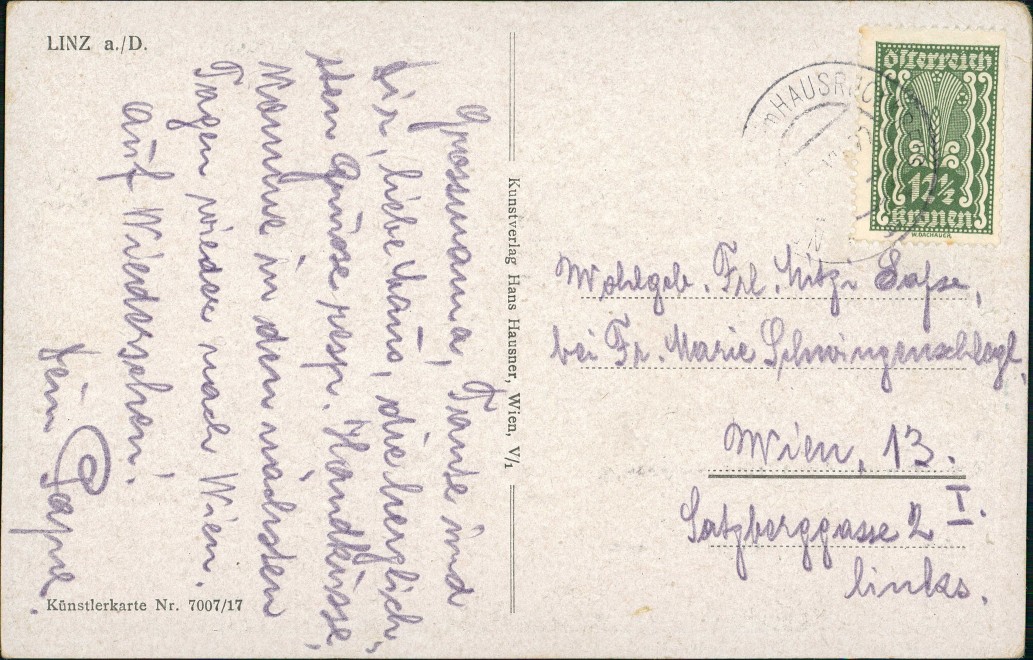 LINZ a./D.
Grossmama, Tante und
Dir, liebe Mäus, die herzlich-
sten Grüsse resp. Handküsse,
Komme in den nächsten
Tagen wieder nach Wien.
Auf Wiedersehen!
Dein
Künstlerkarte Nr. 7007/17
Kunstverlag Hans Hausner, Wien, V/1
österreich
12½
kronen
W. DACHAUER.
HAUSRUCK
Wohlgeb. Frl. Mitzi
bei Fr. Marie Schwingenschlögl,
Wien, 13.
Satzberggasse 2 I.
links.